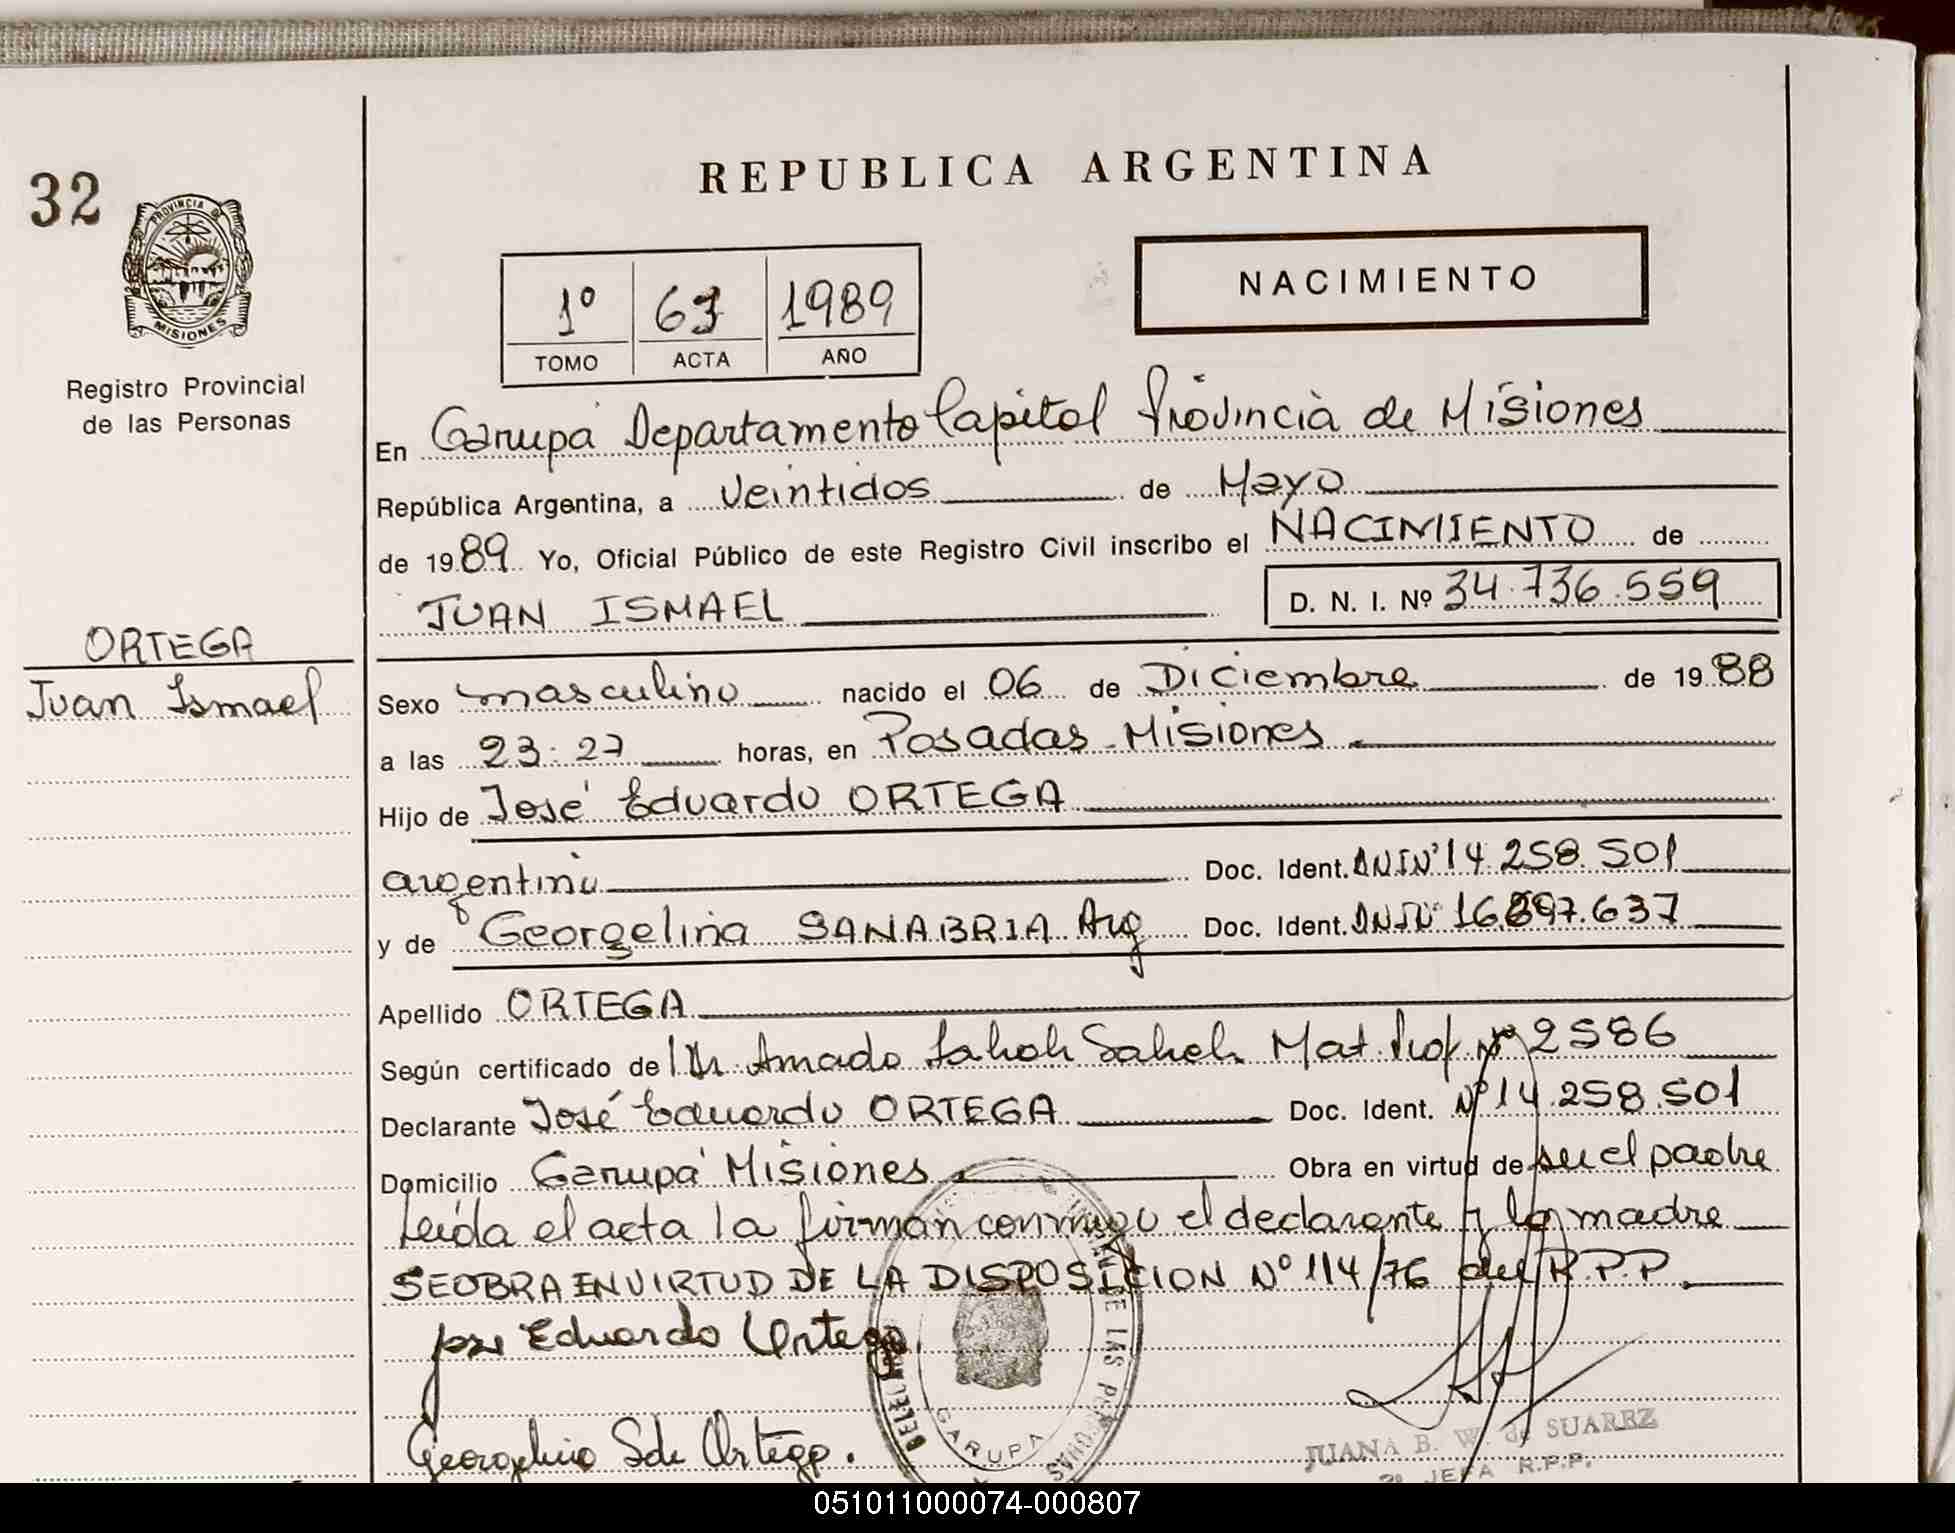 32
PROVINCIA DE
MISIONES
Registro Provincial
de las Personas
ORTEGA
Juan Ismael
REPUBLICA ARGENTINA
1º 63 1989
TOMO ACTA AÑO
NACIMIENTO
En Garupá Departamento Capital Provincia de Misiones
República Argentina, a veintidos de Mayo
de 1989 Yo, Oficial Público de este Registro Civil inscribo el NACIMIENTO de
JUAN ISMAEL D. N. I. Nº 34.736.559
Sexo masculino nacido el 06 de Diciembre de 1988
a las 23:27 horas, en Posadas - Misiones
Hijo de José Eduardo ORTEGA
argentino Doc. Ident. DNI Nº 14.258.501
y de Georgelina SANABRIA Arg Doc. Ident. DNI Nº 16.897.637
Apellido ORTEGA
Según certificado de Dr. Amado Mat. Prof. Nº 2586
Declarante José Eduardo ORTEGA Doc. Ident. Nº 14.258.501
Domicilio Garupá Misiones Obra en virtud de ser el padre
Leída el acta la firman conmigo el declarante y la madre
SE OBRA EN VIRTUD DE LA DISPOSICION Nº 114/76 del R.P.P.
Jose Eduardo Ortega
Georgelina S de Ortega.
GARUPA
JUANA B. W. de SUAREZ
JEFA R.P.P.
051011000074-000807